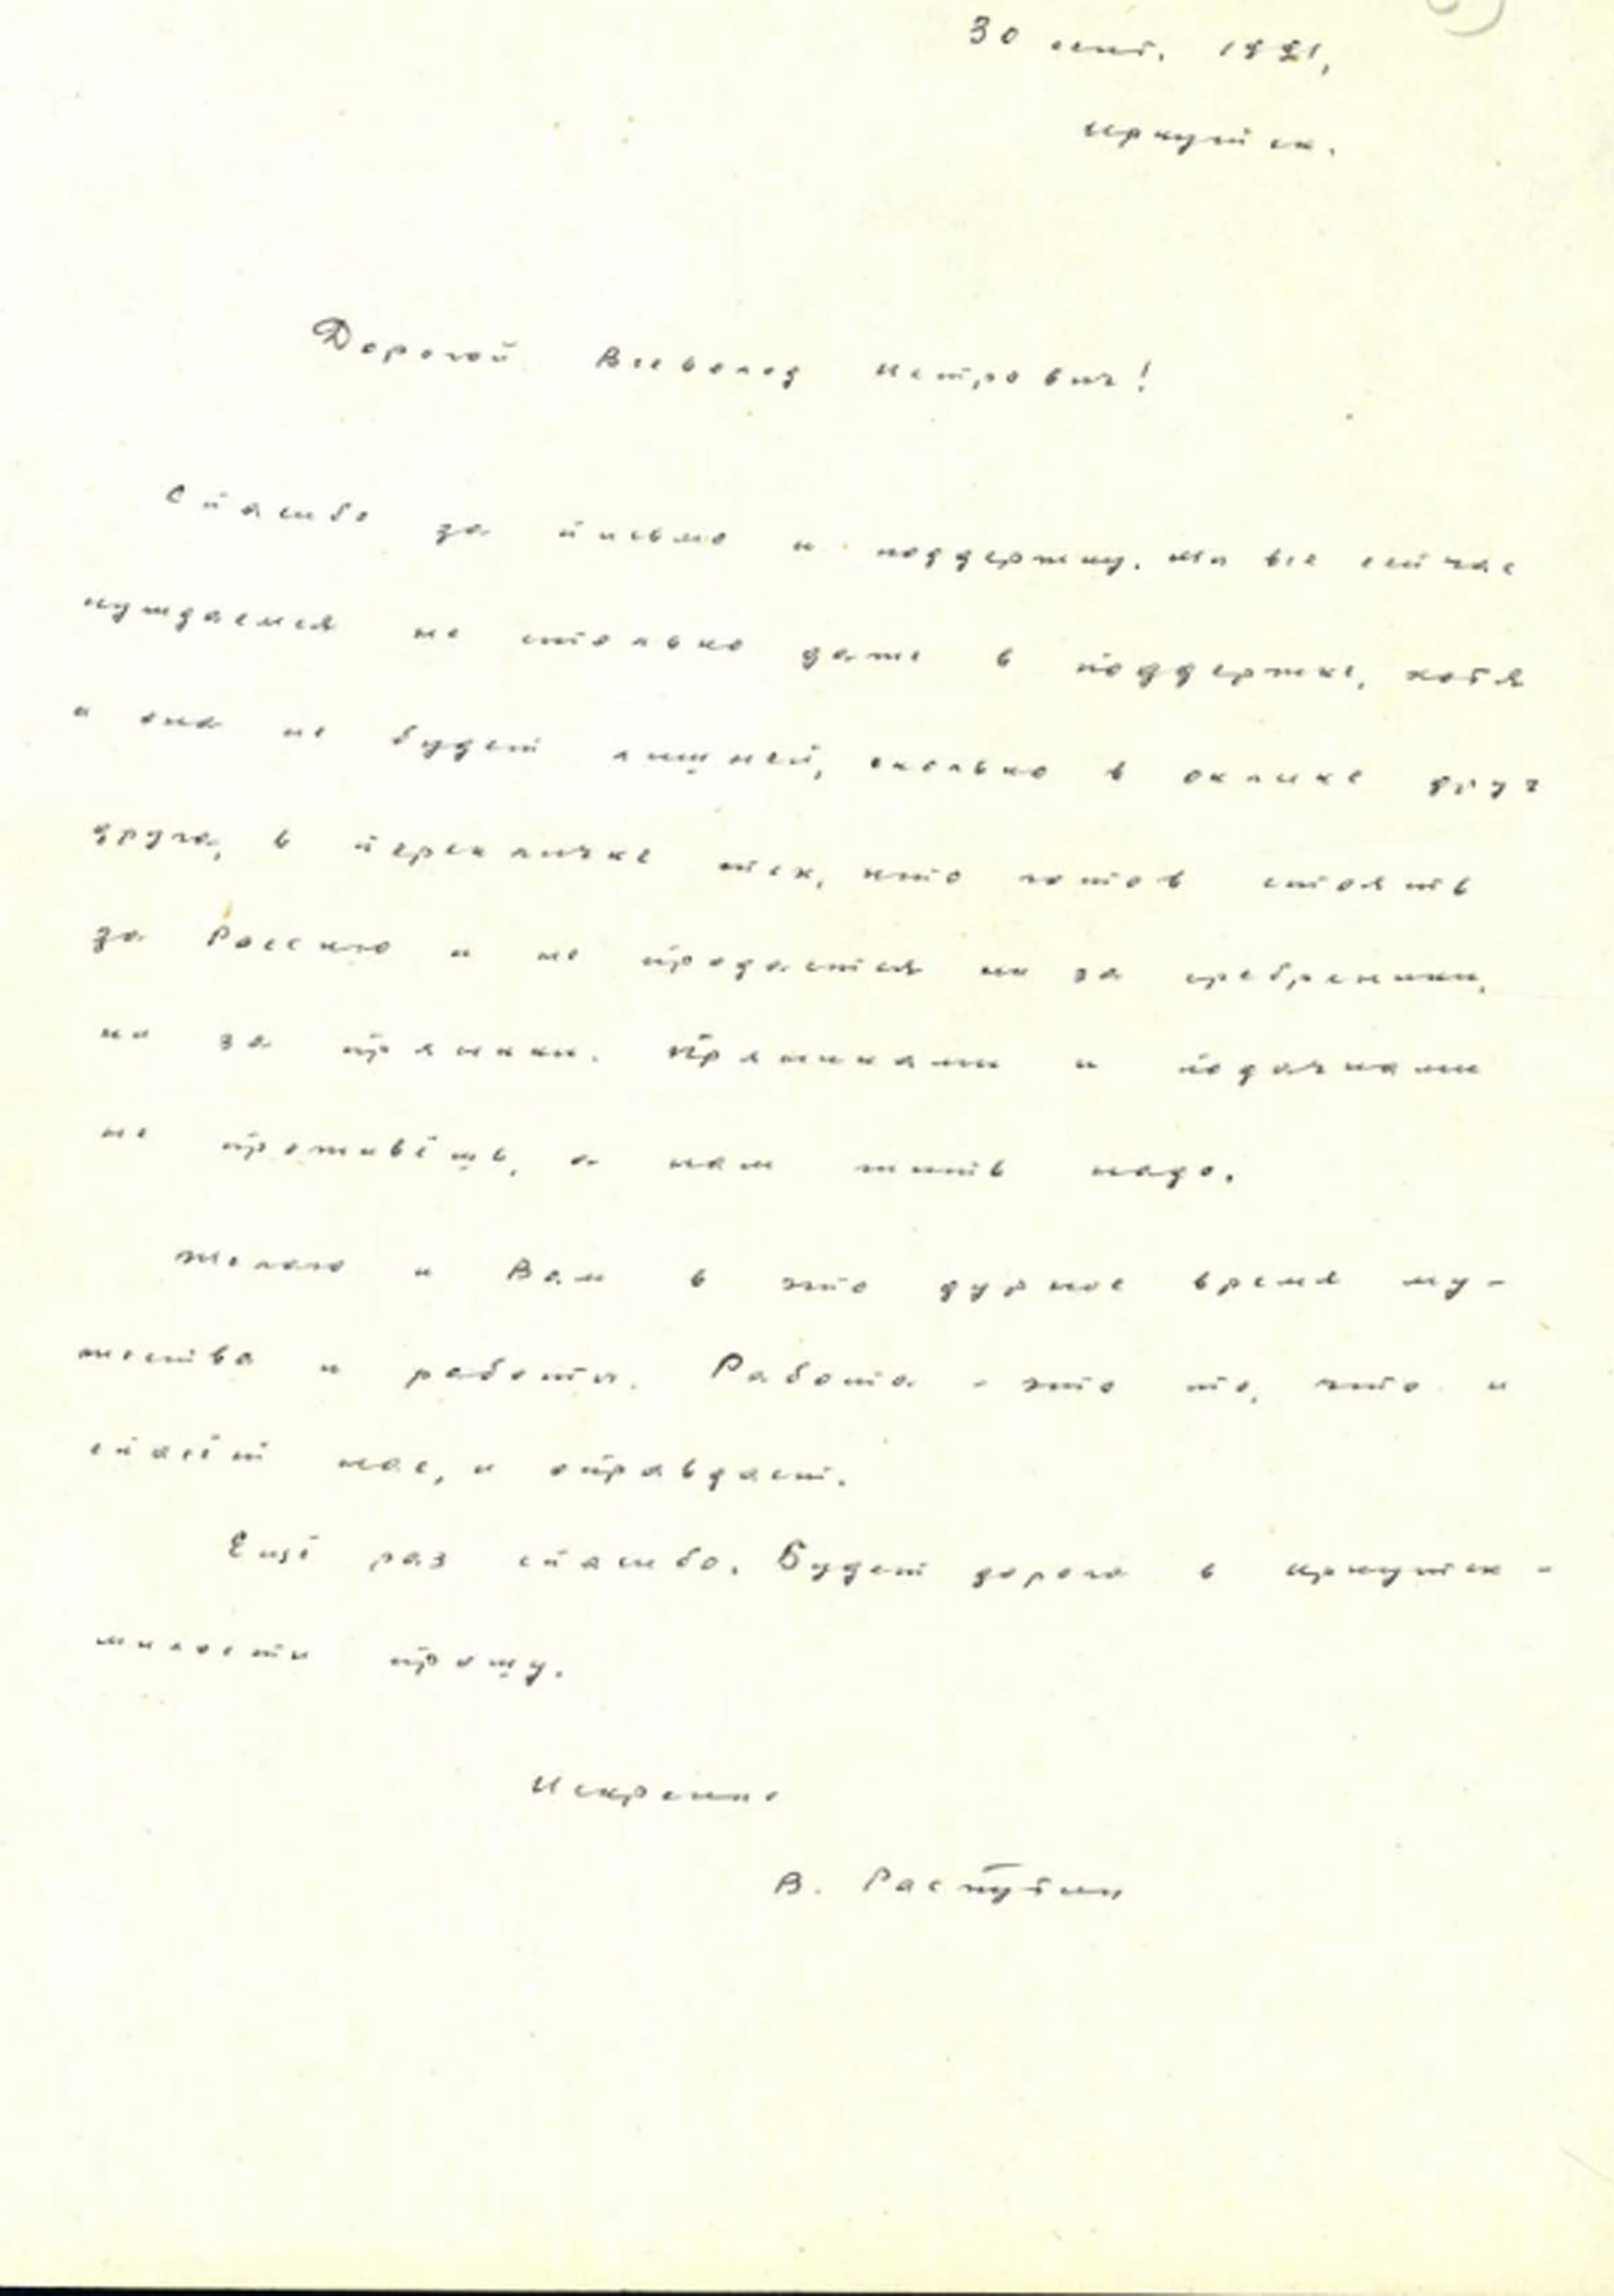 30 сент. 1991,
Иркутск.
Дорогой Всеволод Петрович!
Спасибо за письмо и поддержку. Мы все сейчас
нуждаемся не столько даже в поддержке, хотя
и она не будет лишней, сколько в оклике друг
друга, в перекличке тех, кто готов стоять
за Россию и не продастся ни за сребреники,
ни за пряники. Пряниками и подачками
не проживёшь, а нам жить надо.
Желаю и Вам в это дурное время му-
жества и работы. Работа - это то, что и
спасёт нас, и оправдает.
Ещё раз спасибо. Будет дорога в Иркутск -
милости прошу.
Искренне
В. Распутин